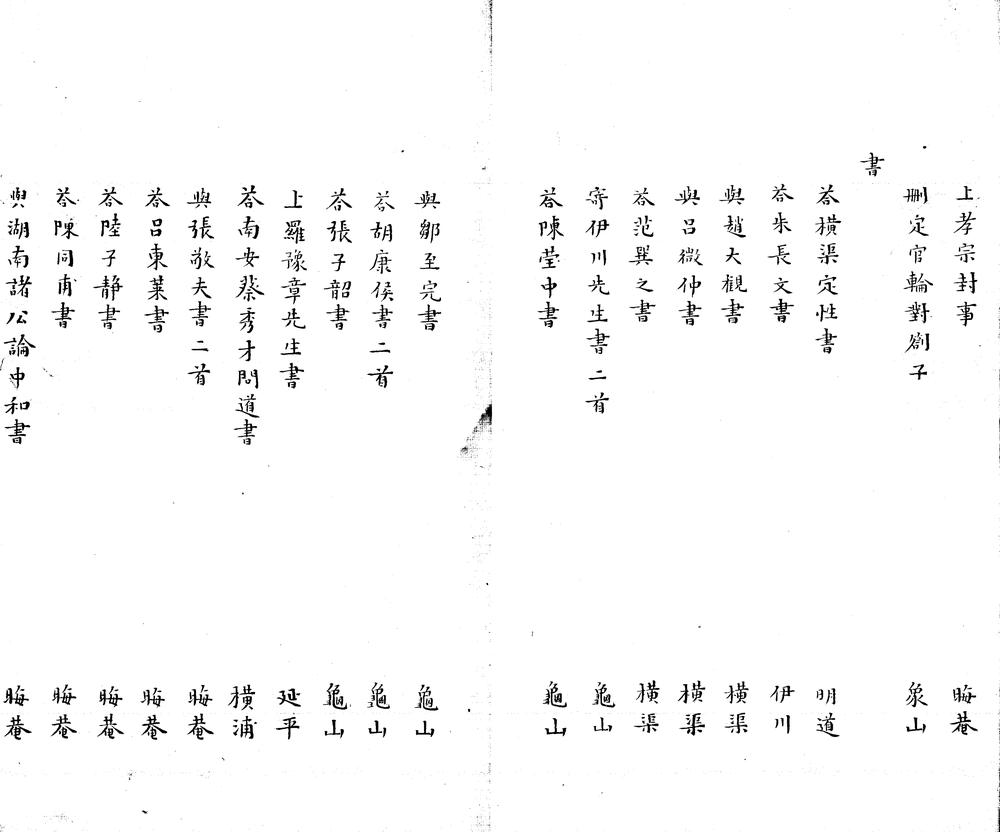 上孝宗封事 晦菴
刪定官輪對劄子 象山
書
荅橫渠定性書 明道
荅朱長文書 伊川
與趙大觀書 橫渠
與呂微仲書 橫渠
荅范巽之書 橫渠
寄伊川先生書二首 龜山
荅陳瑩中書 龜山
與鄒至完書 龜山
荅胡康侯書二首 龜山
荅張子韶書 龜山
上羅豫章先生書 延平
荅南安蔡秀才問道書 橫浦
與張敬夫書二首 晦菴
荅呂東萊書 晦菴
荅陸子靜書 晦菴
荅陳同甫書 晦菴
與湖南諸公論中和書 晦菴